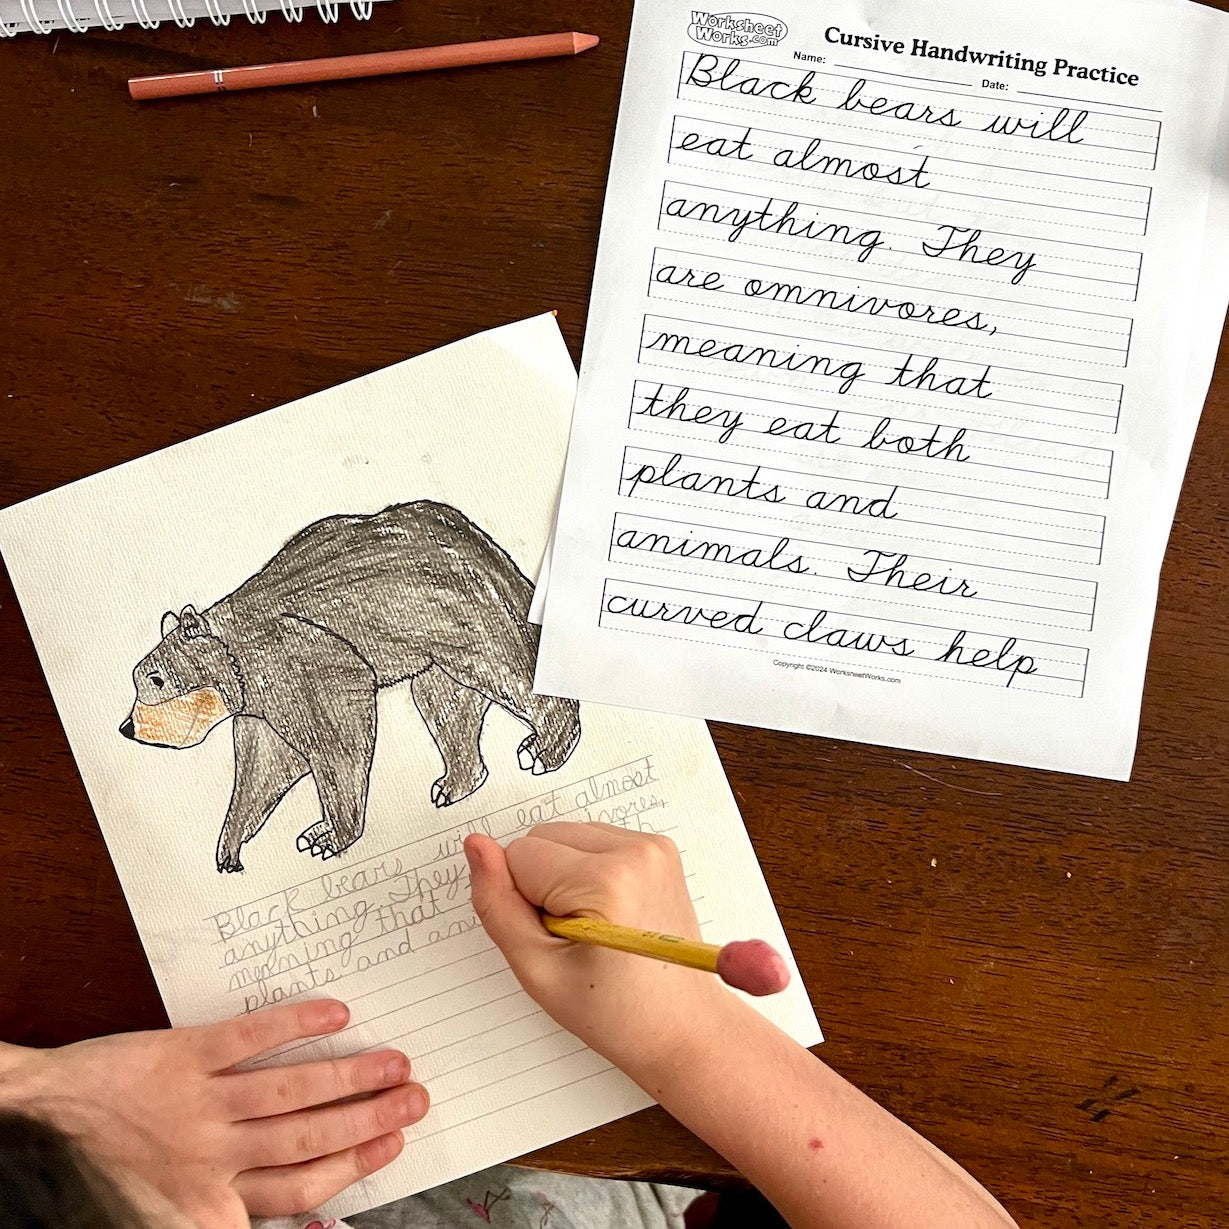 Worksheet
Works.com
Cursive Handwriting Practice
Name:
Date:
Black bears will
eat almost
anything. They
are omnivores,
meaning that
they eat both
plants and
animals. Their
curved claws help
Copyright ©2024 WorksheetWorks.com
Black bears will eat almost
anything. They
that
plants and ani